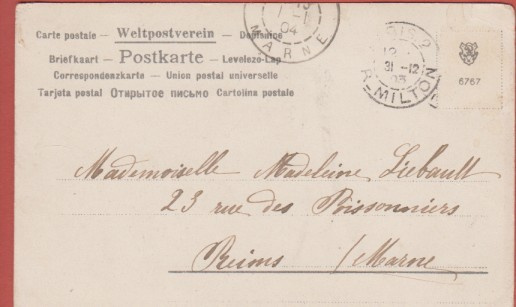 Carte postale — Weltpostverein — Dopisnice
Briefkaart — Postkarte — Levelezo-Lap
Correspondenzkarte — Union postal universelle
Tarjeta postal Открытое письмо Cartolina postale
04
MARNE
31-12
R. MILTON
6767
Mademoiselle Madeleine Liébault
23 rue des Poissonniers
Reims /Marne